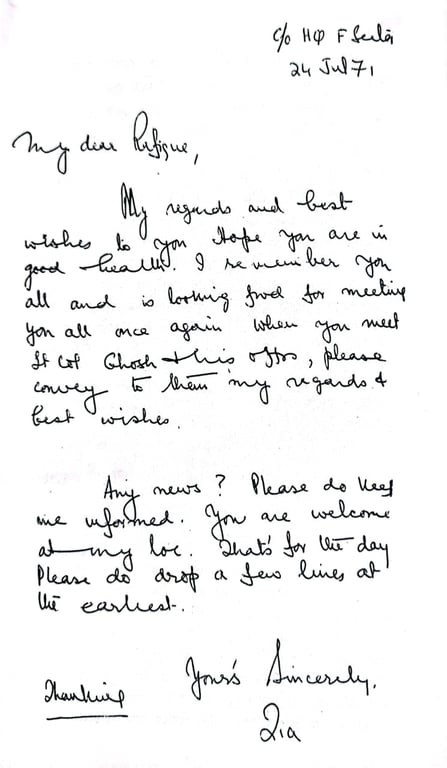 c/o HQ F Sector
24 Jul 71
My dear Rafique,
My regards and best
wishes to you Hope you are in
good health. I remember you
all and is looking fwd for meeting
you all once again when you meet
Lt Col Ghosh & his offrs, please
convey to them my regards &
best wishes.
Any news? Please do keep
me informed. You are welcome
at my loc. That's for the day
Please do drop a few lines at
the earliest.
Yours Sincerely,
Thanking
Zia